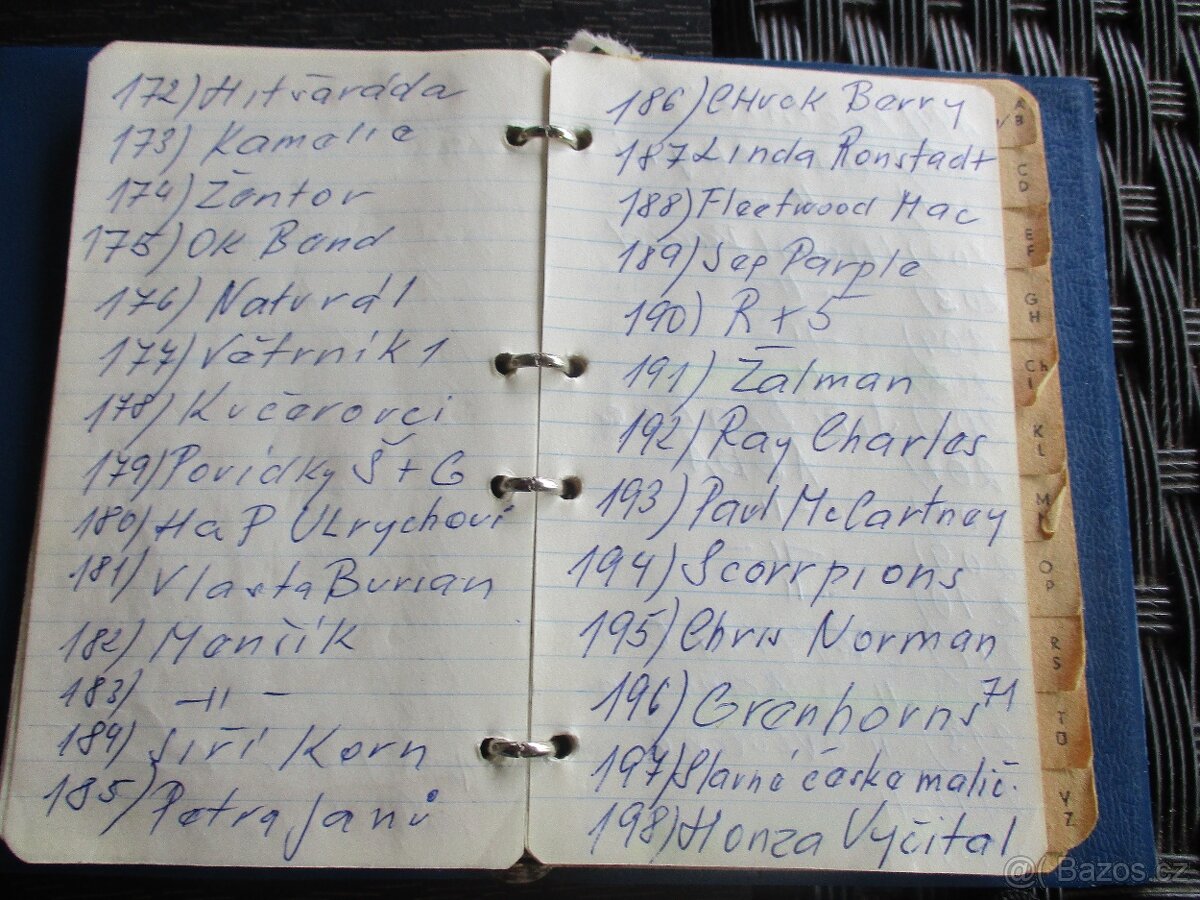 172) Hitšaráda
173) Kamelie
174) Žentor
175) OK Band
176) Naturál
177) Větrník 1
178) Kučerovci
179) Povídky Š + G
180) H a P Ulrychovi
181) Vlasta Burian
182) Menšík
183) —||—
184) Jiří Korn
185) Petra Janů
186) CHuck Berry
187 Linda Ronstadt
188) Fleetwood Mac
189) Jep Parple
190) R + 5
191) Žalman
192) Ray Charles
193) Paul McCartney
194) Scorrpions
195) Chris Norman
196) Grenhorns 71
197) Slavné česke malič.
198) Honza Vyčítal
A
B
C
D
E
F
G
H
Ch
I
K
L
M
O
P
R
S
T
U
V
Z
Bazos.cz